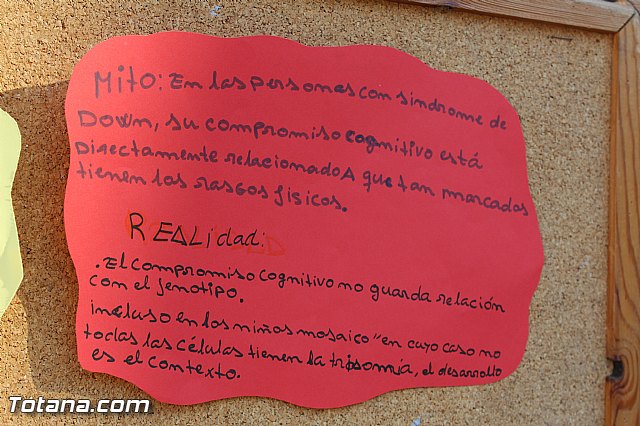 Mito: En las personas con sindrome de
Down, su compromiso cognitivo está
Directamente relacionado A que tan marcados
tienen los rasgos fisicos.
REALidad:
. El compromiso cognitivo no guarda relación
con el fenotipo.
incluso en los niños mosaico "en cuyo caso no
todas las células tienen la trisomía, el desarrollo
es el contexto.
Totana.com